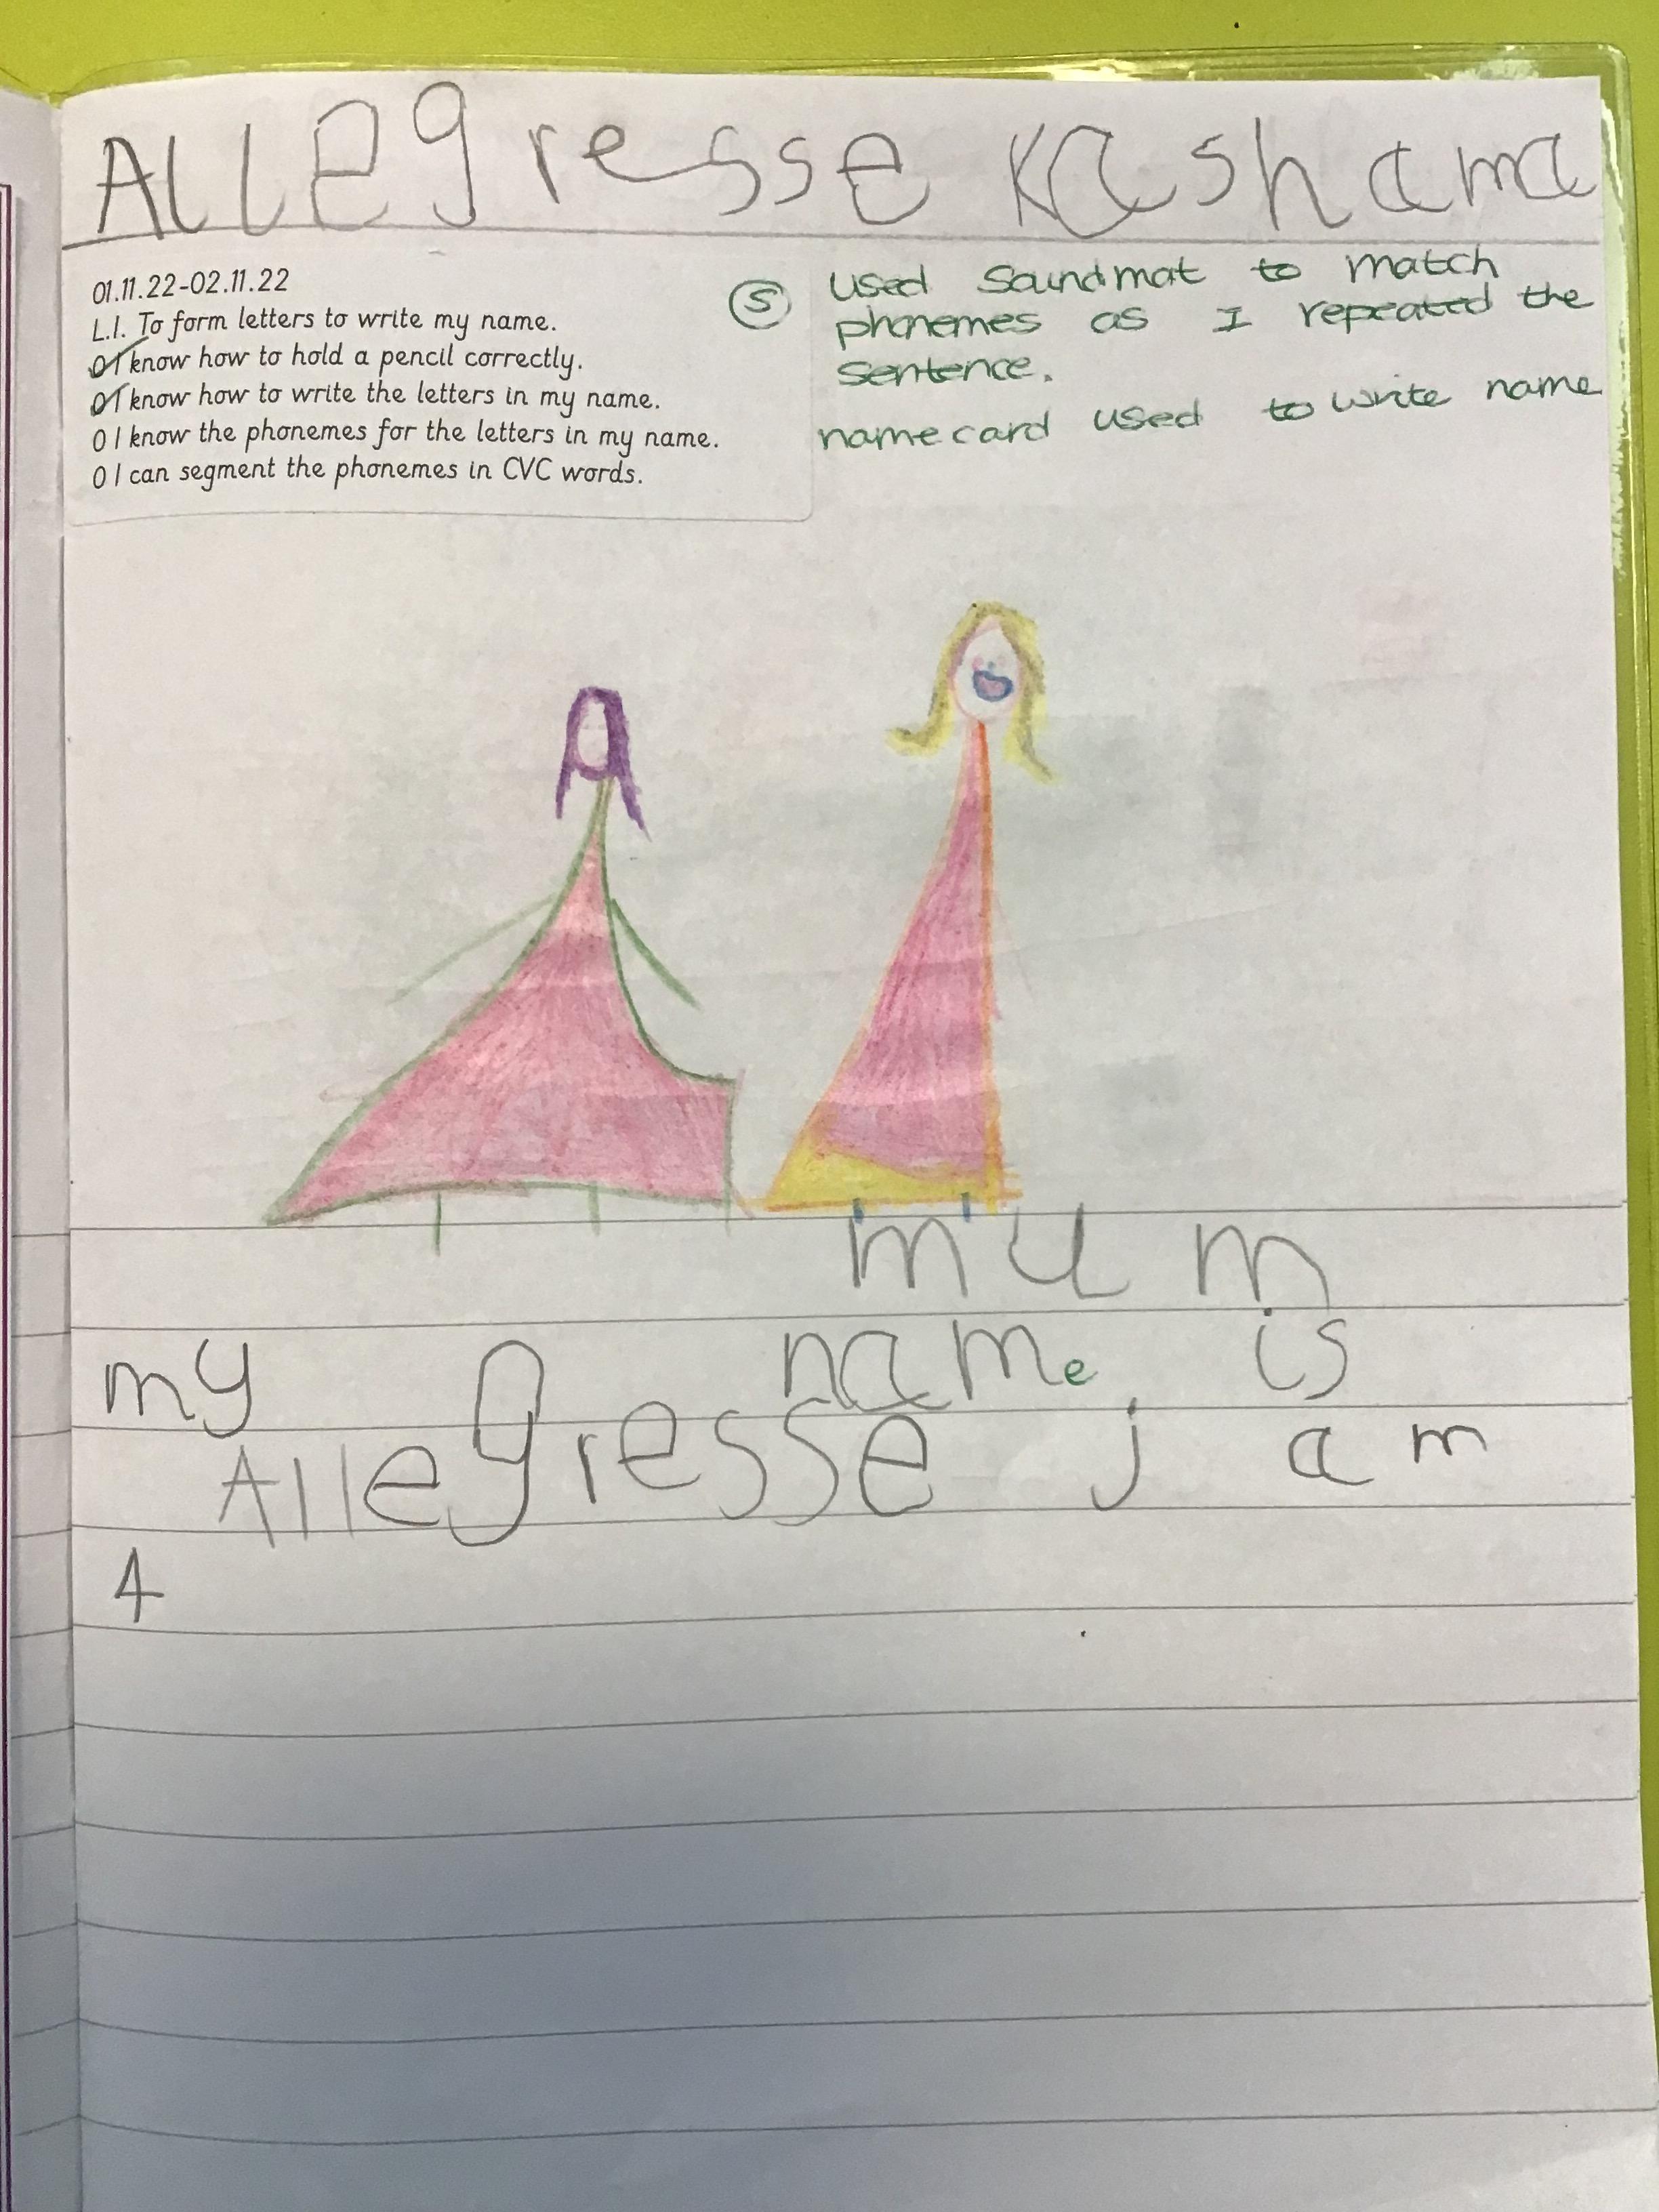 ALLEgresse Kashama
01.11.22-02.11.22
L.I. To form letters to write my name.
O I know how to hold a pencil correctly.
O I know how to write the letters in my name.
O I know the phonemes for the letters in my name.
O I can segment the phonemes in CVC words.
S used Soundmat to match
phonemes as I repeated the
sentence.
namecard used to write name
mum
my name is
Allegresse j am
4